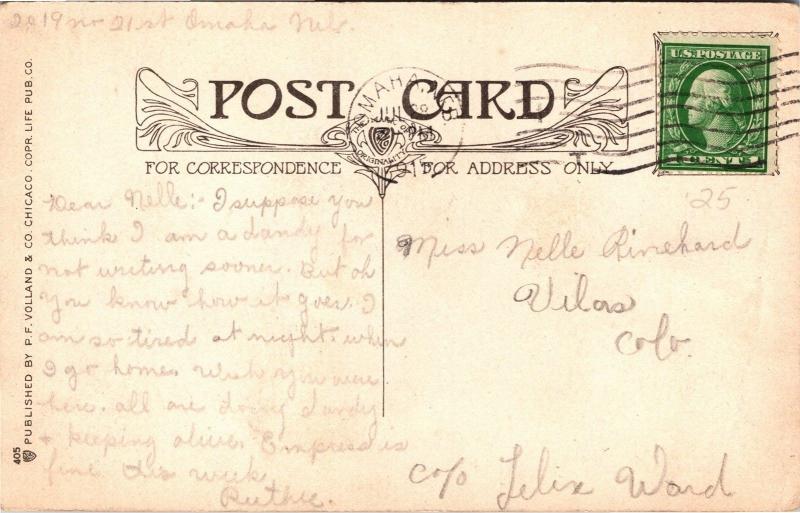 2019 no 21st Omaha Neb.
POST CARD
OMAHA
JUL
PM
1913
ORIGINALITY
U.S. POSTAGE
CENTS
FOR CORRESPONDENCE
FOR ADDRESS ONLY
'25
Dear Nelle:- I suppose you
think I am a dandy for
not writing sooner. But oh
you know how it goes. I
am so tired at night. when
I go home. wish you were
here. all are doing dandy
+ keeping alive. Empress is
fine this week
Ruthie.
Miss Nelle Rinehard
Vilas
Colo.
c/o Felix Ward
405 PUBLISHED BY P.F. VOLLAND & CO. CHICAGO. COPR. LIFE PUB. CO.